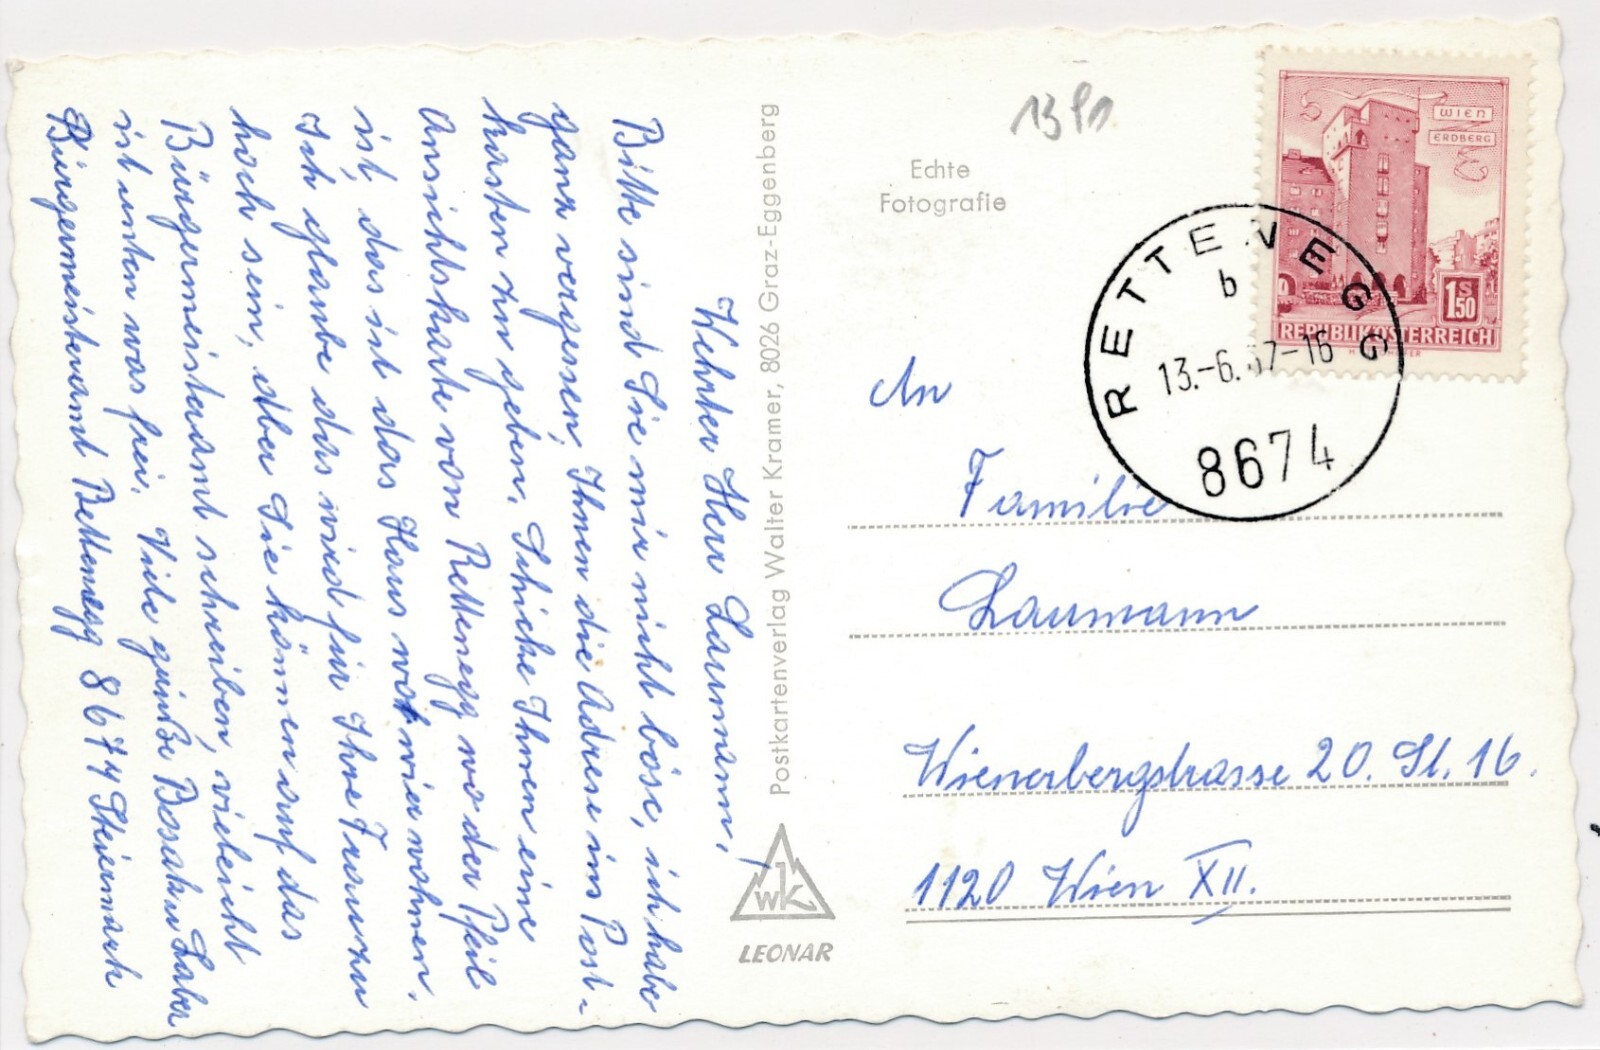 Werter Herr Laumann,
Bitte sind Sie mir nicht böse, ich habe
ganz vergesen, Ihnen die Adresse ins Post-
kasten zu geben. Schicke Ihnen eine
Ansichtskarte von Rettenegg wo der Pfeil
ist, das ist das Haus wo wir wohnen.
Ich glaube das wird für Ihre Frau zu
hoch sein, aber Sie können auf das
Bürgermeisteramt schreiben, vieleicht
ist unten was frei. Viele grüße
Bürgermeisteramt Rettenegg 8674 Steiermark
Postkartenverlag Walter Kramer, 8026 Graz-Eggenberg
WK
LEONAR
Echte
Fotografie
WIEN
ERDBERG
1 S 50
REPUBLIK ÖSTERREICH
RETTENEGG
b
13.-6.67-16
8674
An
Familie
Laumann
Wienerbergstrasse 20. St. 16.
1120 Wien XII.